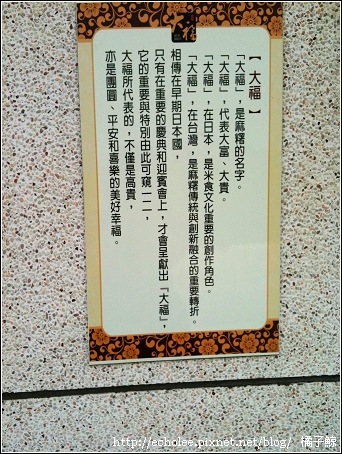 大福
【大福】
「大福」，是麻糬的名字。
「大福」，代表大富、大貴。
「大福」，在日本，是米食文化重要的創作角色。
「大福」，在台灣，是麻糬傳統與創新融合的重要轉折。
相傳在早期日本國，
只有在重要的慶典和迎賓會上，才會呈獻出「大福」，
它的重要與特別由此可窺一二，
大福所代表的，不僅是高貴，
亦是團圓、平安和喜樂的美好幸福。
http://echolee.pixnet.net/blog/ 橘子鯨